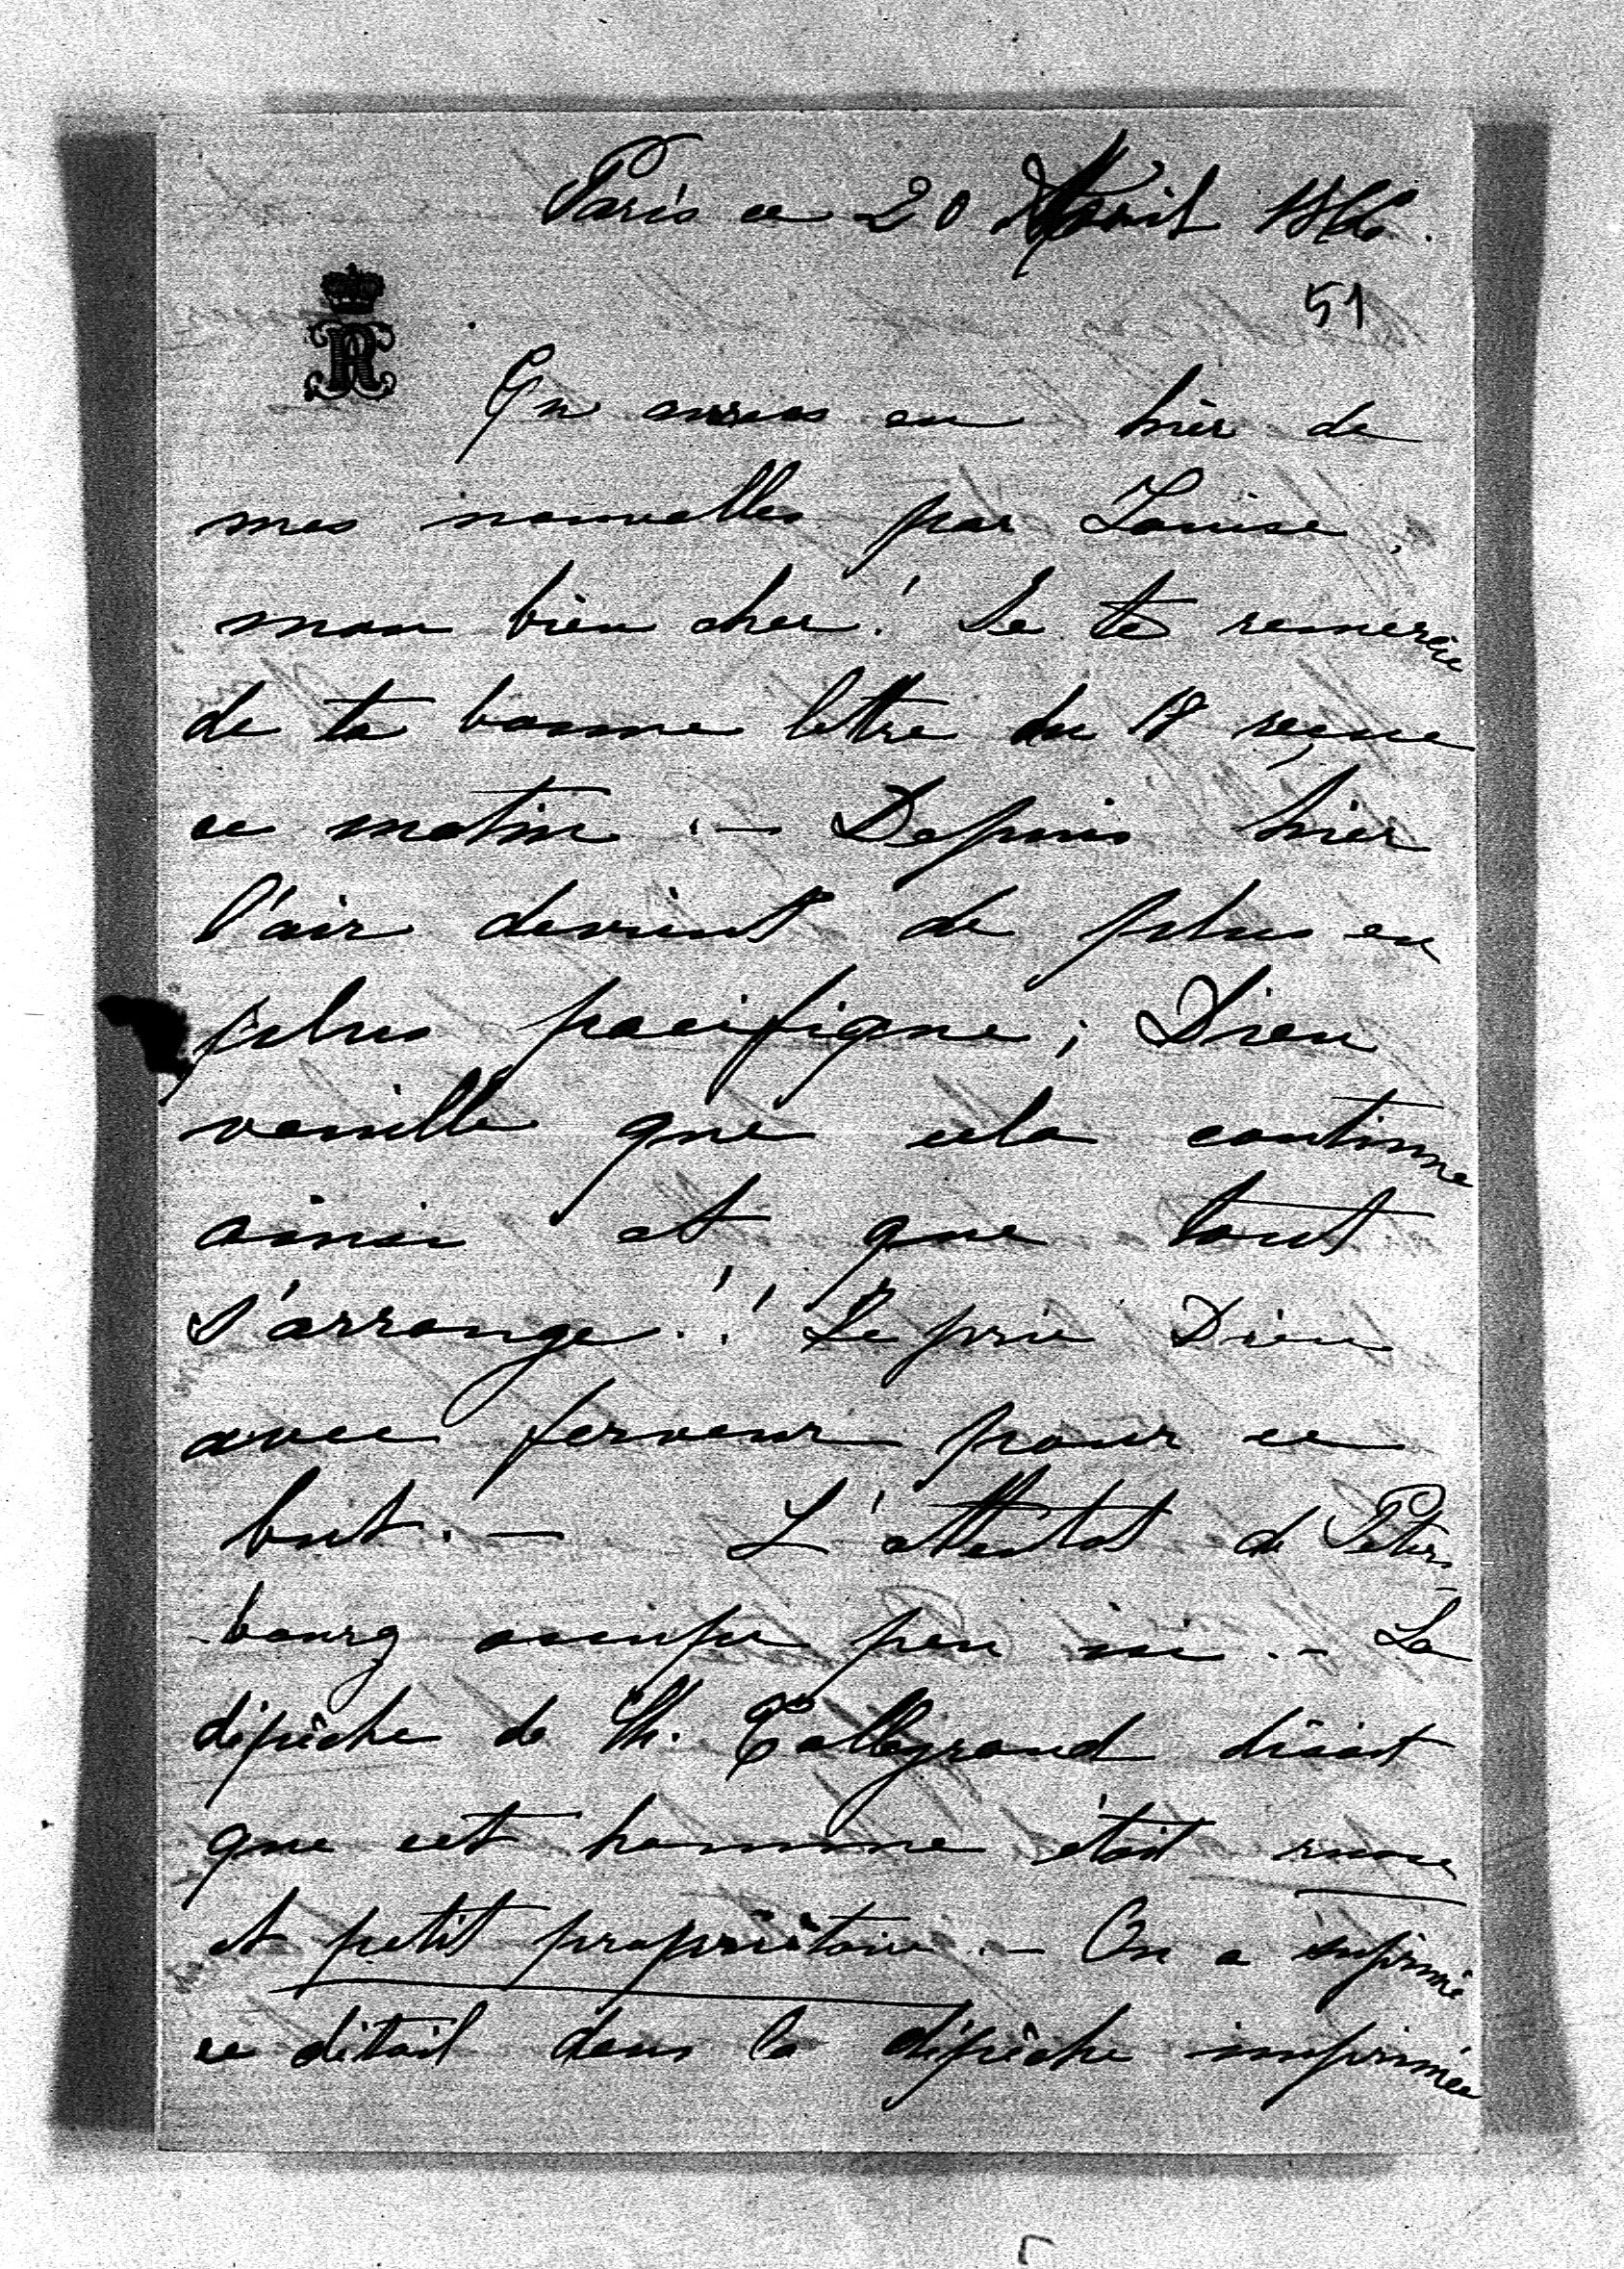 Paris ce 20 Avril 1866.
51
R
Tu auras eu hier de
mes nouvelles par Louise,
mon bien cher! Je te remercie
de ta bonne lettre du 17 reçue
ce matin. — Depuis hier
l'air devient de plus en
plus pacifique; Dieu
veuille que cela continue
ainsi et que tout
s'arrange!! Je prie Dieu
avec ferveur pour ce
but. — L'attentat de Peters-
bourg occupe peu ici. — La
dépêche de Talleyrand disait
que cet homme était russe
et petit propriétaire. — On a suprimé
ce détail dans la dépêche imprimée